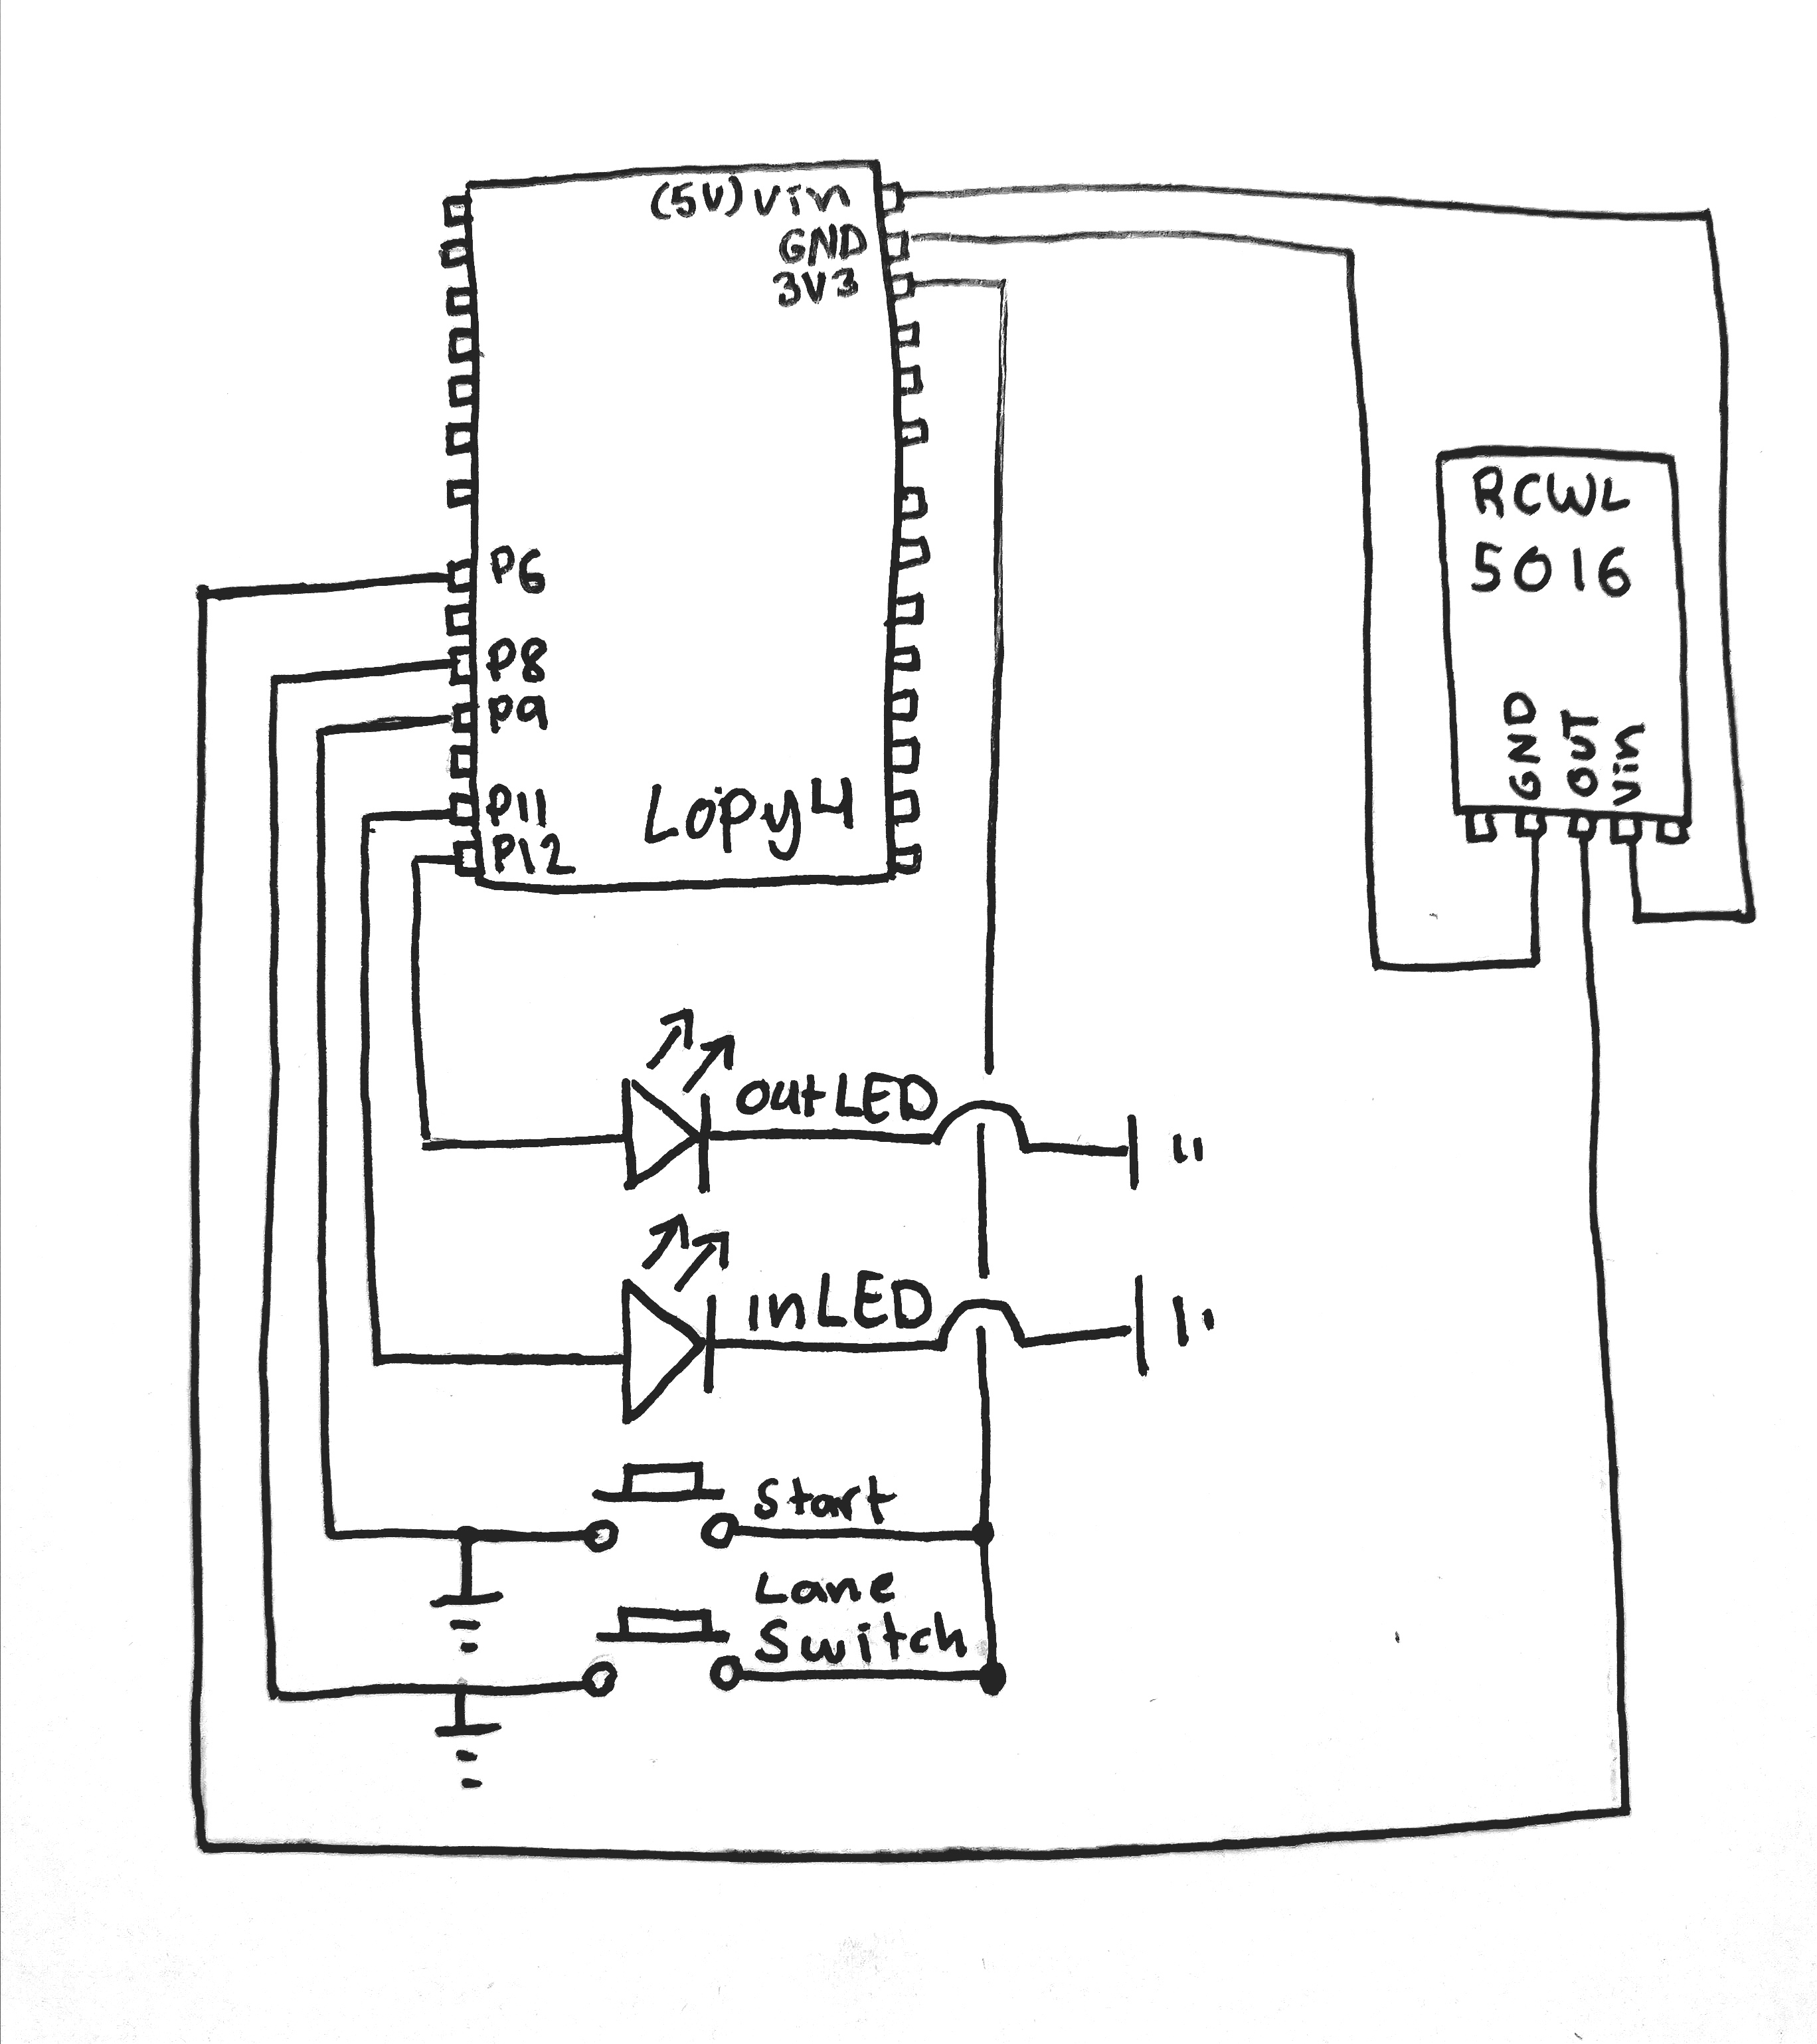 (5V)Vin
GND
3V3
P6
P8
P9
P11
P12
Lopy4
RCWL
5016
GND
OUT
Vin
OutLED
inLED
Start
Lane
Switch